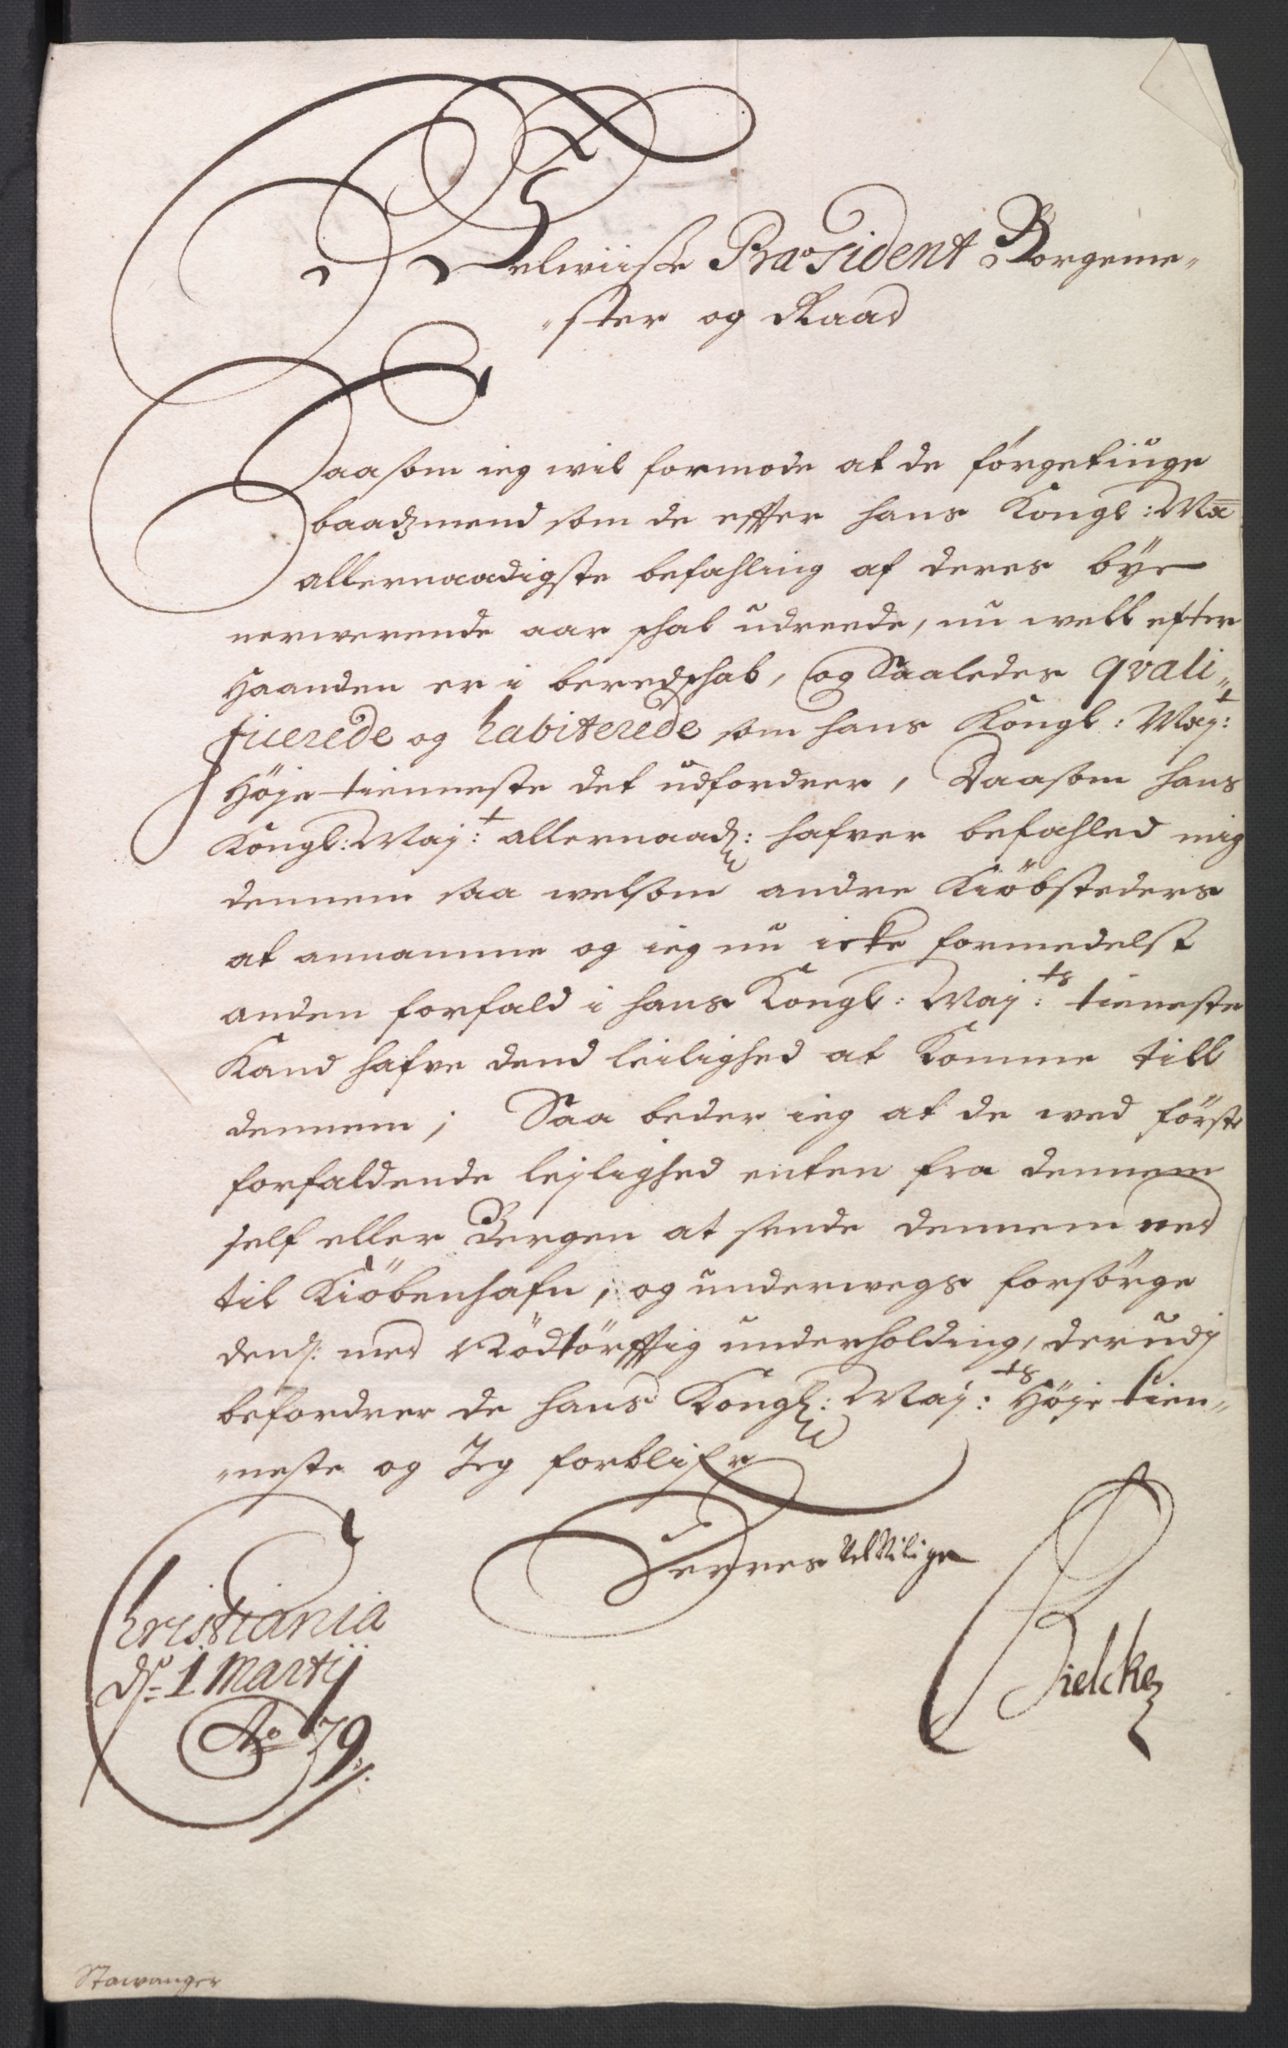 Velwiisse Præsident Borgeme-
-ster og Raad
Saasom ieg wil formode at de förgetiuge
baadzmend som de effter hans Kongl: Ma
allernaadigste befahling af deres bye
nerwerende aar schal udreede, nu well efter
Haanden er i beredschab, og Saaledes qvali-
ficerede og habiterede som hans Kongl: Maj:t
Höje tienneste det udfordrer, Daasom hans
Kongl: Maj:t allernaad: hafver befahled mig
dennem saa welsom andre Kiöbsteders
at annamme og ieg nu icke formedelst
anden forfald i hans Kongl: Maj:ts tieneste
Kand hafve dend leilighed at Komme till
dennem; Saa beder ieg at de wed förste
forfaldende lejlighed enten fra dennem
self eller Bergen at sende dennem ned
til Kiöbenhafn, og underwegs forsörge
den: med Nödtörfftig underholding, derudj
befordrer de hans Kongl: Maj:ts Höje tien-
-neste og Jeg forblifr
Derres VelVilige
Christiania
ds: 1 Martij
Ao 79.
Bielcke
Stawanger